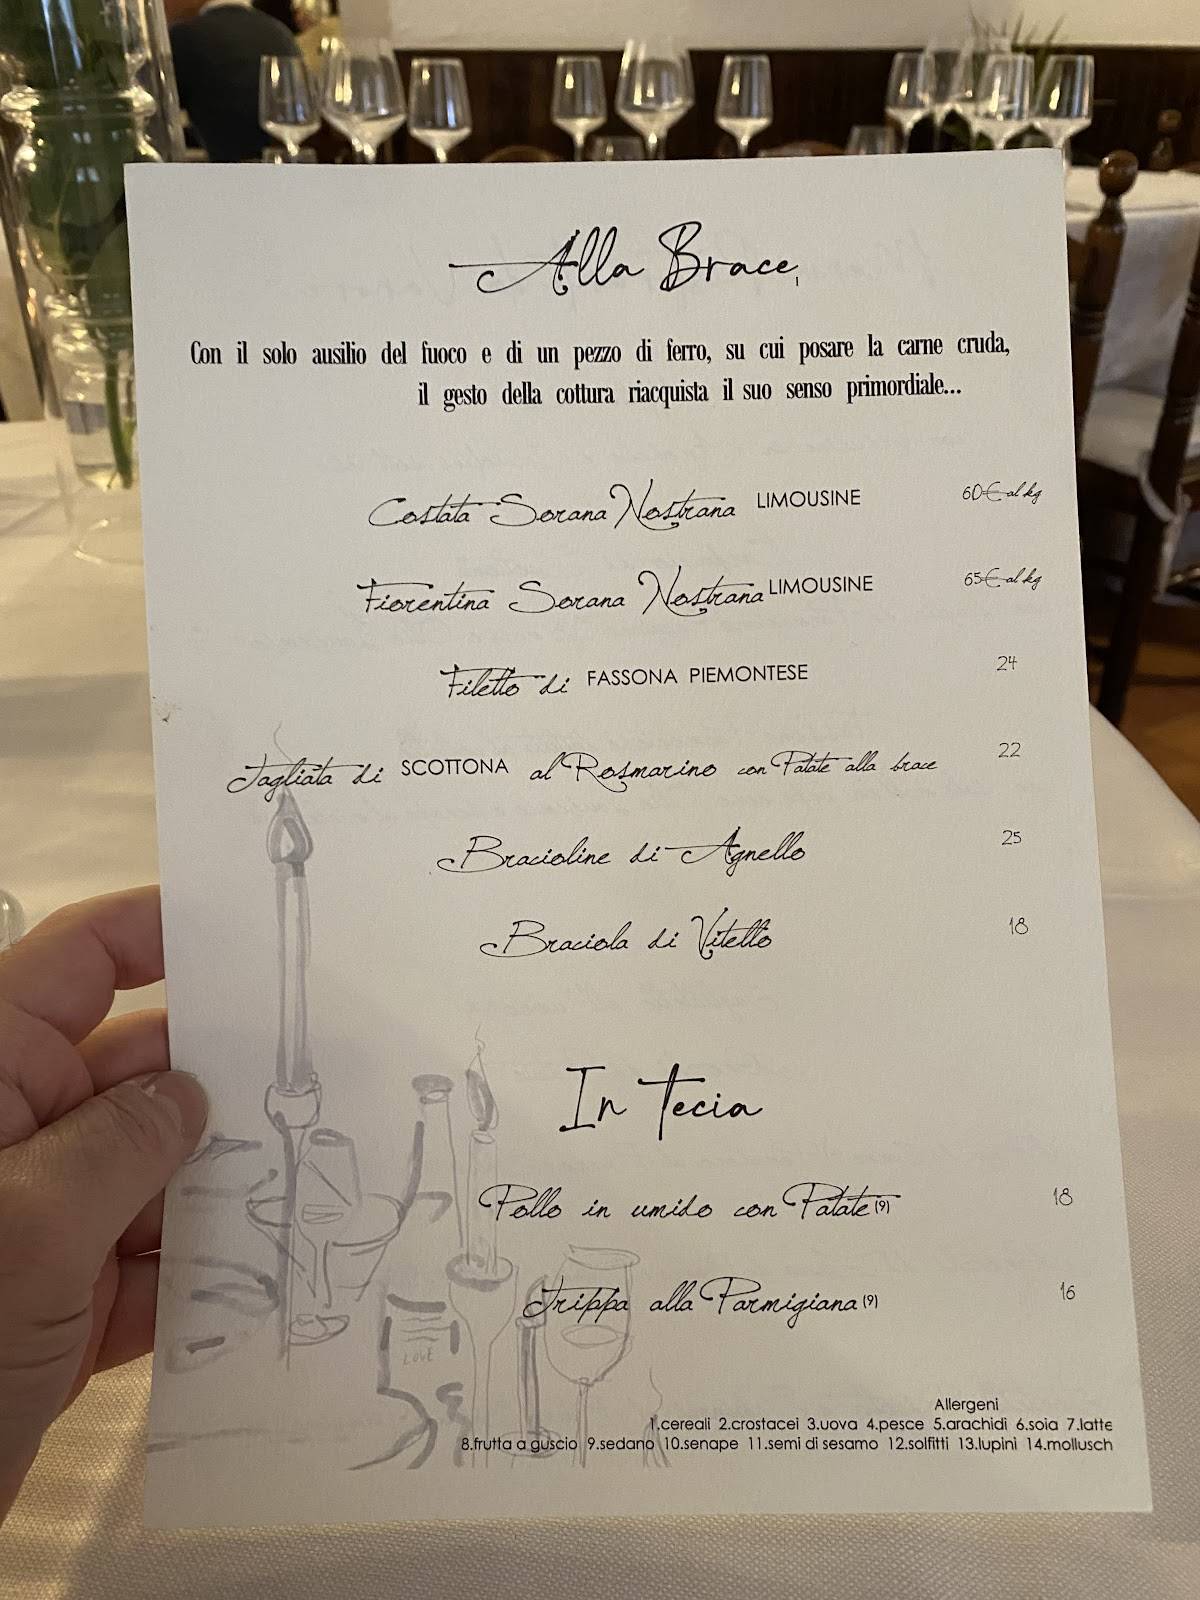 Alla Brace
Con il solo ausilio del fuoco e di un pezzo di ferro, su cui posare la carne cruda,
il gesto della cottura riacquista il suo senso primordiale...
Costata Sorana Nostrana LIMOUSINE 60€ al kg
Fiorentina Sorana Nostrana LIMOUSINE 65€ al kg
Filetto di FASSONA PIEMONTESE 24
Tagliata di SCOTTONA al Rosmarino con Patate alla brace 22
Bracioline di Agnello 25
Braciola di Vitello 18
In Tecia
Pollo in umido con Patate (9) 18
Trippa alla Parmigiana (9) 16
LOVE
Allergeni
1.cereali 2.crostacei 3.uova 4.pesce 5.arachidi 6.soia 7.latte
8.frutta a guscio 9.sedano 10.senape 11.semi di sesamo 12.solfitti 13.lupini 14.mollusch